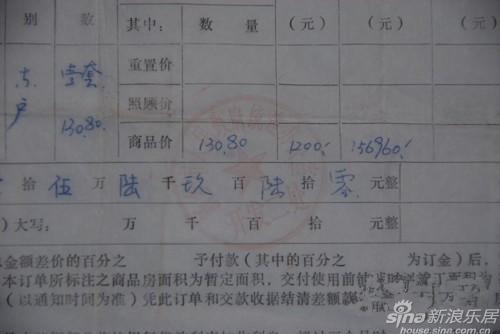 别 数 其中: 数 量 (元) (元)
壹套 重置价
户 130.80 照顾价
商品价 130.80 1200. 156960.
拾 伍 万 陆 千 玖 百 陆 拾 零 元整
)大写: 万 千 百 拾 元整
金额差价的百分之 予付款(其中的百分之 为订金)后,
本订单所标注之商品房面积为暂定面积,交付使用前
(以通知时间为准)凭此订单和交款收据结清差额
sina新浪乐居
house.sina.com.cn